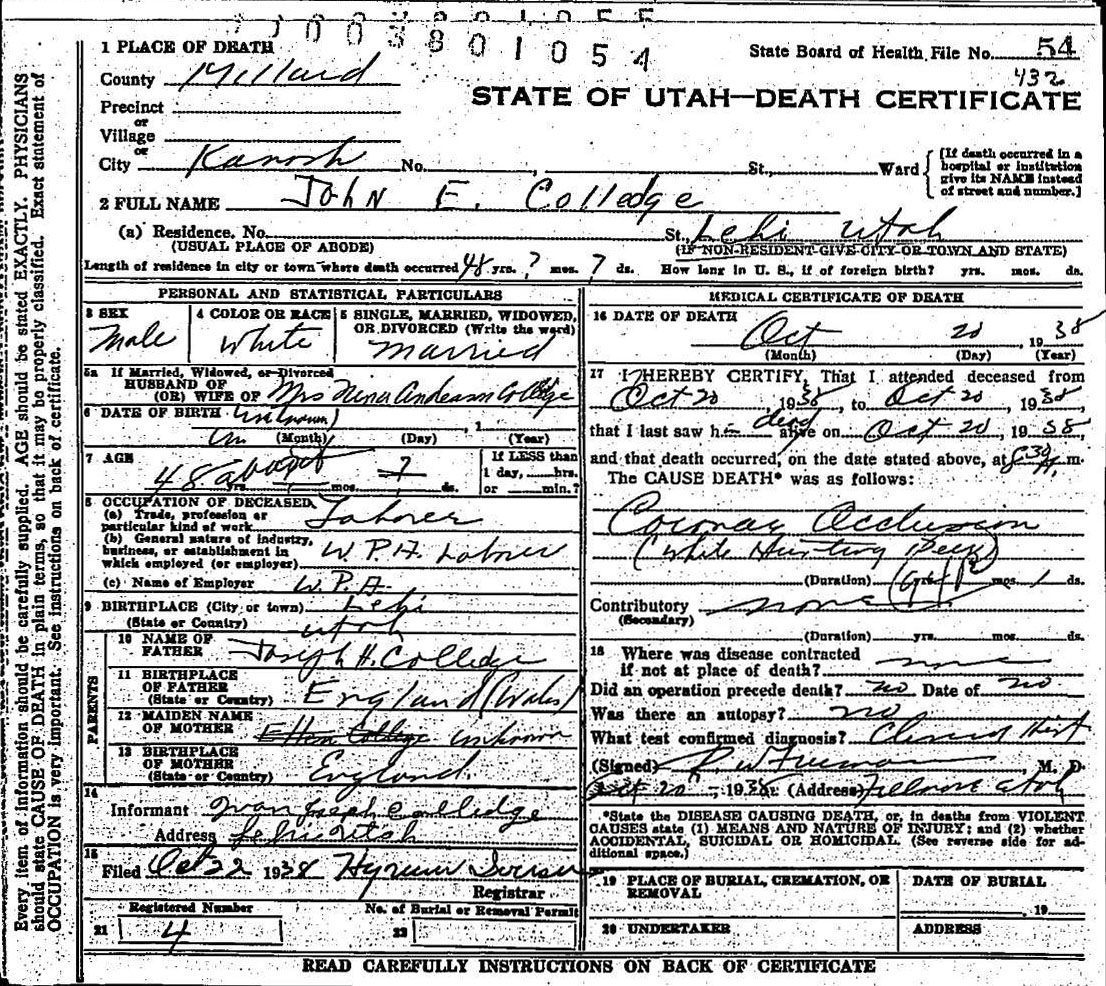 1003801054
1 PLACE OF DEATH
State Board of Health File No. 54
432
County Millard
STATE OF UTAH—DEATH CERTIFICATE
Precinct
or
Village
or
City Kanosh No. , St., Ward
[If death occurred in a hospital or institution give its NAME instead of street and number.]
2 FULL NAME John E. Colledge
(a) Residence. No. St., Lehi Utah
(USUAL PLACE OF ABODE) (IF NON-RESIDENT GIVE CITY OR TOWN AND STATE)
Length of residence in city or town where death occurred 48 yrs. ? mos. ? ds. How long in U. S., if of foreign birth? yrs. mos. ds.
PERSONAL AND STATISTICAL PARTICULARS
3 SEX
Male
4 COLOR OR RACE
White
5 SINGLE, MARRIED, WIDOWED,
OR DIVORCED (Write the word)
Married
5a If Married, Widowed, or Divorced
HUSBAND OF
(OR) WIFE OF Mrs Nina Anderson Colledge
6 DATE OF BIRTH Unknown , 1
(Month) (Day) (Year)
7 AGE
48 about ?
yrs. mos. ds.
If LESS than
1 day, hrs.
or min.?
8 OCCUPATION OF DECEASED
(a) Trade, profession or
particular kind of work Laborer
(b) General nature of industry,
business, or establishment in
which employed (or employer) W.P.A. Laborer
(c) Name of Employer W.P.A.
9 BIRTHPLACE (City or town) Lehi
(State or Country) Utah
PARENTS
10 NAME OF
FATHER Joseph H. Colledge
11 BIRTHPLACE
OF FATHER
(State or Country) England (Wales)
12 MAIDEN NAME
OF MOTHER Unknown
13 BIRTHPLACE
OF MOTHER
(State or Country) England.
14
Informant Ivan Joseph Colledge
Address Lehi Utah
15
Filed Oct 22 1938 Hyrum
Registrar
Registered Number
21 4
No. of Burial or Removal Permit
22
MEDICAL CERTIFICATE OF DEATH
16 DATE OF DEATH
Oct 20 1938
(Month) (Day) (Year)
17 I HEREBY CERTIFY, That I attended deceased from
Oct 20 1938, to Oct 20, 1938,
that I last saw h dead alive on Oct 20, 1938,
and that death occurred, on the date stated above, at m.
The CAUSE DEATH* was as follows:
Coronary Occlusion
(While Hunting Deer)
(Duration) yrs. mos. 1 ds.
Contributory none
(Secondary)
(Duration) yrs. mos. ds.
18 Where was disease contracted
if not at place of death? none
Did an operation precede death? no Date of no
Was there an autopsy? no
What test confirmed diagnosis? Clinical Hist
(Signed) Freeman M. D.
Oct 20, 1938 (Address) Fillmore Utah
*State the DISEASE CAUSING DEATH, or, in deaths from VIOLENT
CAUSES state (1) MEANS AND NATURE OF INJURY; and (2) whether
ACCIDENTAL, SUICIDAL OR HOMICIDAL. (See reverse side for ad-
ditional space.)
19 PLACE OF BURIAL, CREMATION, OR
REMOVAL
DATE OF BURIAL
, 19
20 UNDERTAKER
ADDRESS
READ CAREFULLY INSTRUCTIONS ON BACK OF CERTIFICATE
Every item of information should be carefully supplied. AGE should be stated EXACTLY. PHYSICIANS
should state CAUSE OF DEATH in plain terms, so that it may be properly classified. Exact statement of
OCCUPATION is very important. See instructions on back of certificate.